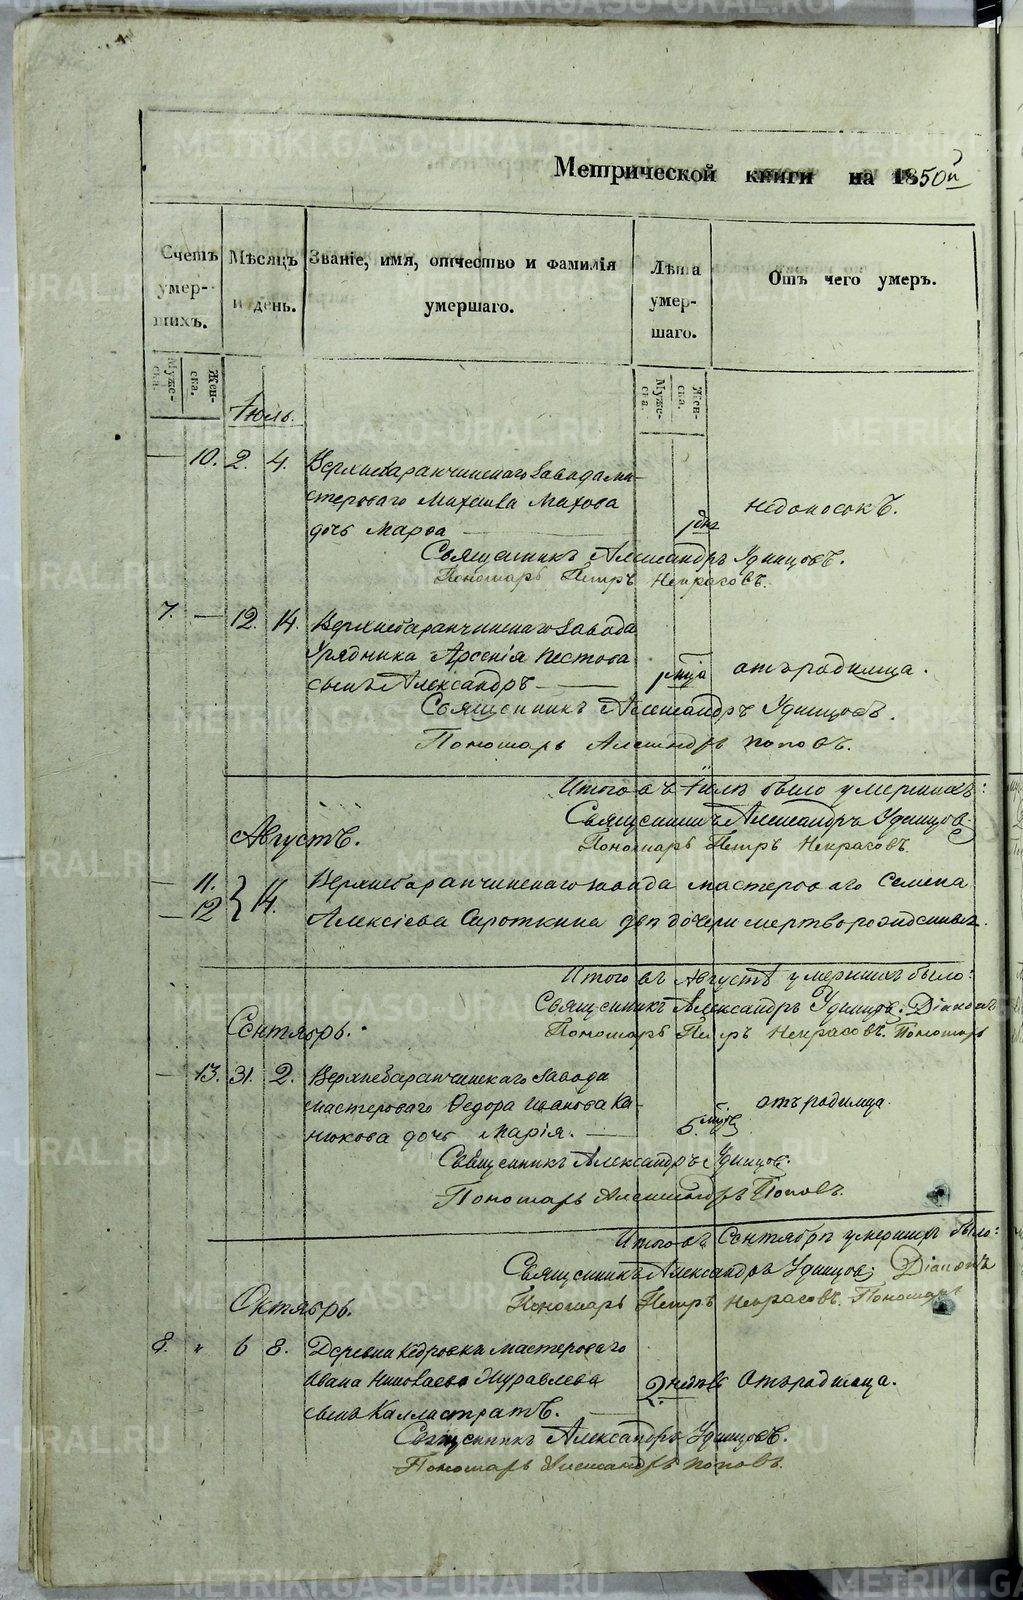 Метрической книги на 1850й
Счетъ умер-шихъ.
Мѣсяцъ и день.
Званіе, имя, отчество и фамилія умершаго.
Лѣта умер-шаго.
Отъ чего умеръ.
Мужс-ска.
Жен-ска.
Мужс-ска.
Жен-ска.
Іюль.
— 10. 2. 4. Верхнебаранчинскаго завода ма-
стероваго Михаила Махова
недоносокъ.
дочь Марѳа —
Священникъ Александръ Удинцовъ.
Пономарь Петръ Некрасовъ.
7. — 12. 14. Верхнебаранчинскаго завода
Урядника Арсенія Пестова
отъ родимца.
сынъ Александръ —
Священникъ Александръ Удинцовъ.
Пономарь Александръ Поповъ.
Итого въ Іюлѣ было умершихъ:
Священникъ Александръ Удинцовъ.
Пономарь Петръ Некрасовъ.
Августъ.
— 11. 14. Верхнебаранчинскаго завода мастероваго Семена
— 12 Алексіева Сироткина двѣ дочери мертворожденныя.
Итого въ Августѣ умершихъ было:
Священникъ Александръ Удинцовъ. Діаконъ
Пономарь Петръ Некрасовъ. Пономарь
Сентябрь.
— 13. 31. 2. Верхнебаранчинскаго завода
мастероваго Ѳедора Иванова Ка-
отъ родимца.
нюкова дочь Марія. —
Священникъ Александръ Удинцовъ.
Пономарь Александръ Поповъ.
Итого въ Сентябрѣ умершихъ было:
Священникъ Александръ Удинцовъ; Діаконъ
Пономарь Петръ Некрасовъ. Пономарь
Октябрь.
8. " 6 8. Деревни Кедровки мастероваго
Ивана Николаева Журавлева
2 недѣль Отъ родимца.
сынъ Каллистратъ.
Священникъ Александръ Удинцовъ.
Пономарь Александръ Поповъ.
METRIKI.GASO-URAL.RU